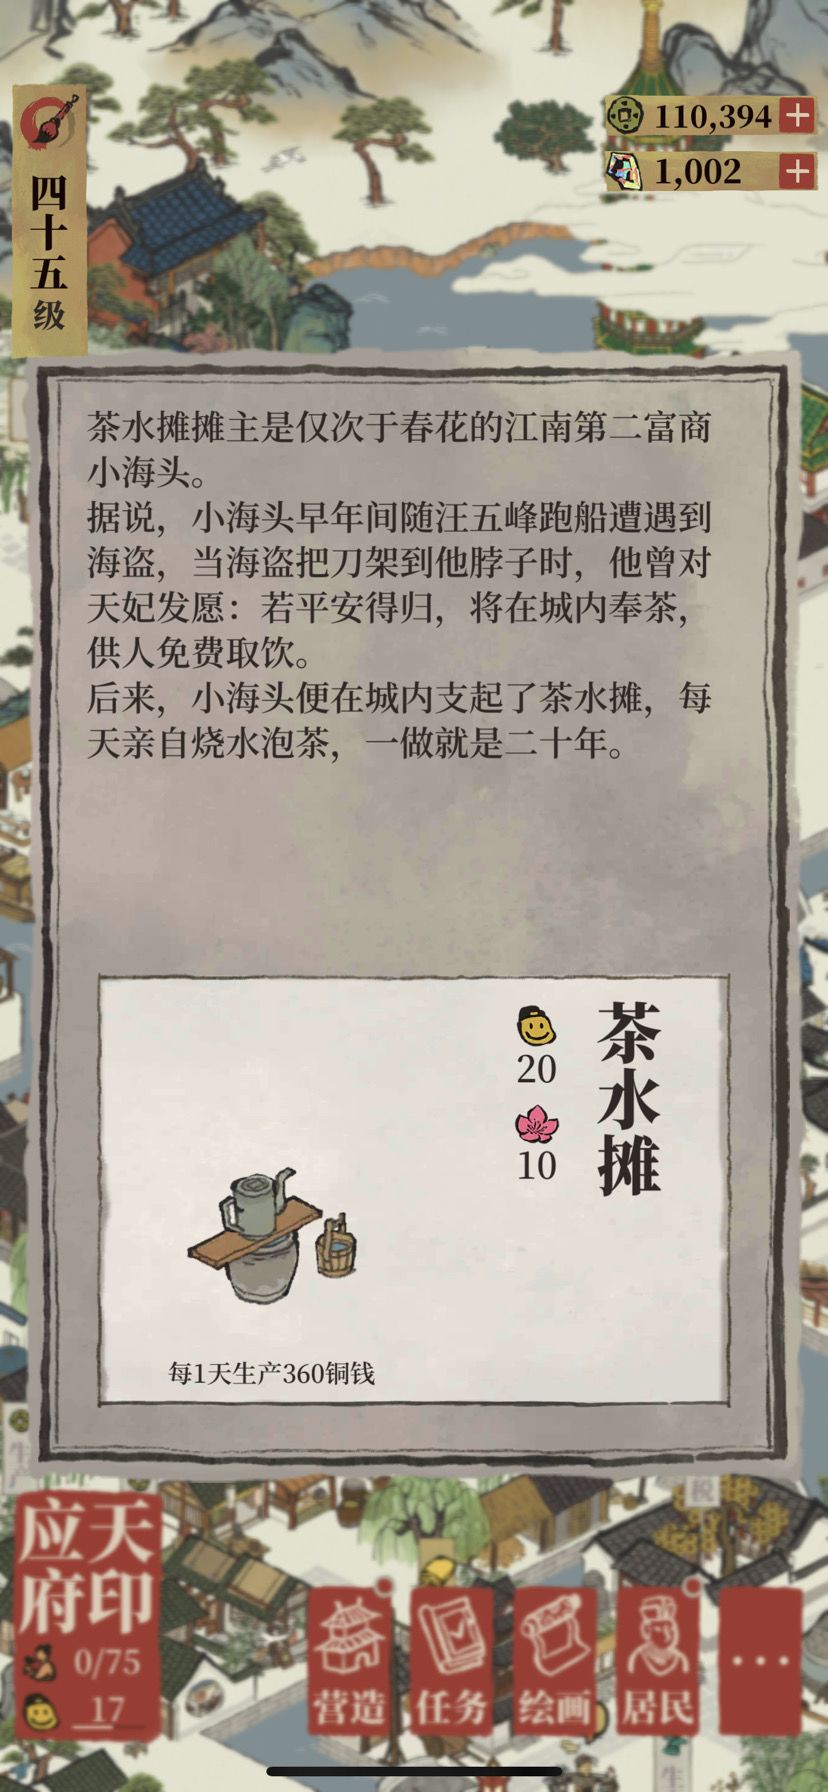 四十五级
110,394
1,002
茶水摊摊主是仅次于春花的江南第二富商
小海头。
据说，小海头早年间随汪五峰跑船遭遇到
海盗，当海盗把刀架到他脖子时，他曾对
天妃发愿：若平安得归，将在城内奉茶，
供人免费取饮。
后来，小海头便在城内支起了茶水摊，每
天亲自烧水泡茶，一做就是二十年。
茶水摊
20
10
每1天生产360铜钱
天印
应府
0/75
17
营造
任务
绘画
居民
税